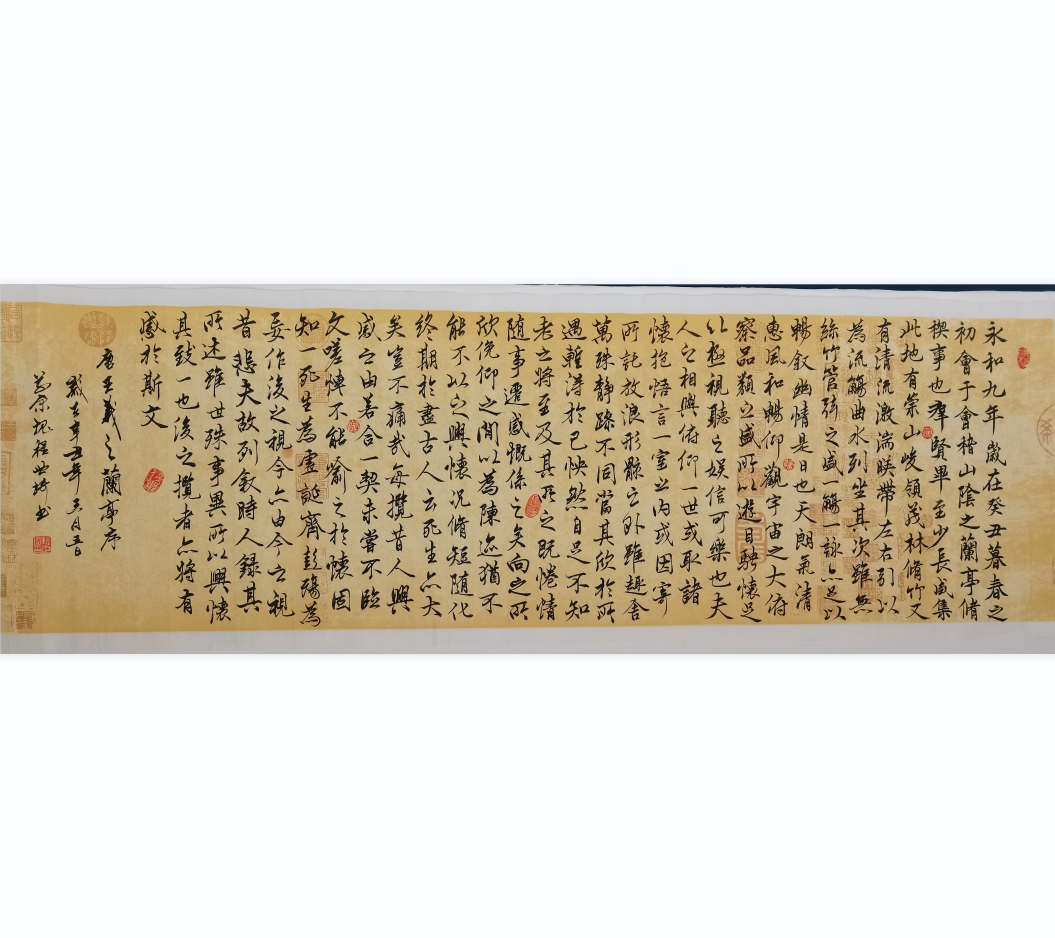 永和九年歲在癸丑暮春之
初會于會稽山陰之蘭亭脩
稧事也羣賢畢至少長咸集
此地有崇山峻領茂林脩竹又
有清流激湍暎帶左右引以
為流觴曲水列坐其次雖無
絲竹管弦之盛一觴一詠亦足以
暢叙幽情是日也天朗氣清
惠風和暢仰觀宇宙之大俯
察品類之盛所以遊目騁懷足
以極視聽之娛信可樂也夫
人之相與俯仰一世或取諸
懷抱悟言一室之內或因寄
所託放浪形骸之外雖趣舍
萬殊静躁不同當其欣於所
遇輕得於己怏然自足不知
老之將至及其所之既惓情
隨事遷感慨係之矣向之所
欣俛仰之閒以為陳迹猶不
能不以之興懷況脩短随化
終期於盡古人云死生亦大
矣豈不痛哉每攬昔人興
感之由若合一契未嘗不臨
文嗟悼不能喻之於懷固
知一死生為虛誕齊彭殤為
妄作後之視今亦由今之視
昔悲夫故列叙時人録其
所述雖世殊事異所以興懷
其致一也後之攬者亦將有
感於斯文
王羲之蘭亭序
歲在辛丑年五月五日
書